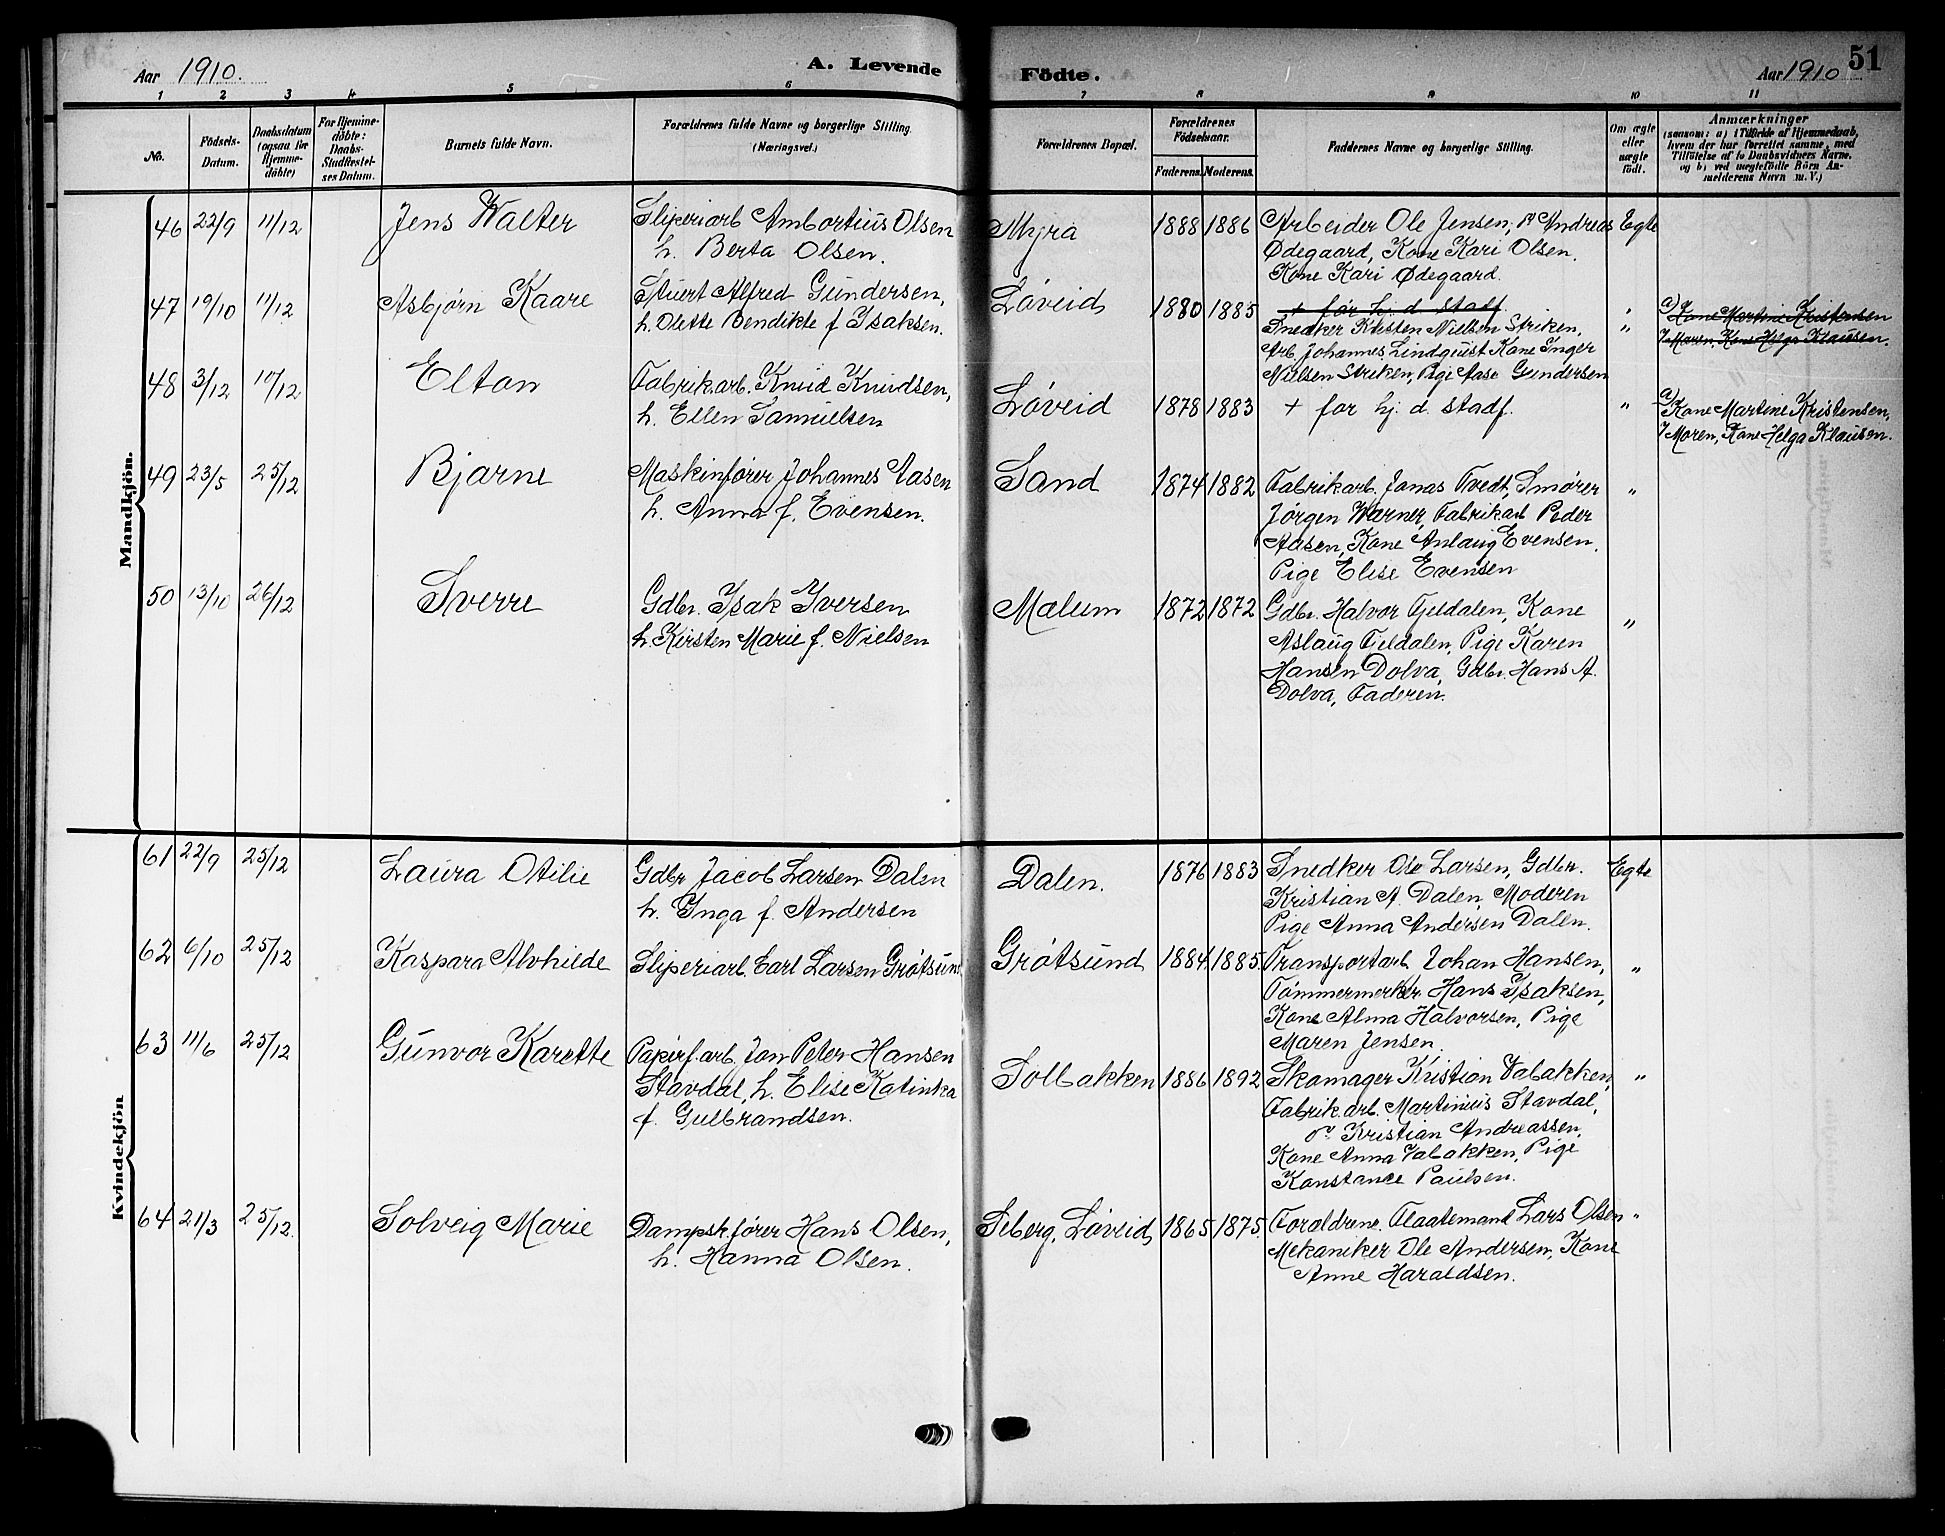 Aar 1910.
A. Levende
Födte.
Aar 1910
51
1 2 3 4 5 6 7 8 9 10 11
No.
Födsels-
Datum.
Daabsdatum
(ogsaa for
Hjemme-
döbte)
For Hjemme-
döbte:
Daabs-
Stadfæstel-
ses Datum.
Barnets fulde Navn.
Forældrenes fulde Navne og borgerlige Stilling.
(Næringsvei.)
Forældrenes Bopæl.
Forældrenes
Födselsaar.
Faderens. Moderens.
Faddernes Navne og borgerlige Stilling.
Om ægte
eller
uægte
födt.
Anmærkninger
(saasom: a) i Tilfælde af Hjemmedaab,
hvem der har forrettet samme, med
Tilföielse af to Daabsvidners Navne,
og b) ved uægtefödte Börn An-
melderens Navn m. V.)
Mandkjön.
46 22/9 11/12 Jens Walter Sliperiarb Ambortius Olsen Myra 1888 1886 Arbeider Ole Jensen, Andreas Egte
h. Berta Olsen. Ødegaard, Kone Kari Olsen.
Kone Kari Ødegaard.
47 19/10 11/12 Asbjørn Kaare Stuert Alfred Gundersen, Løveid 1880 1885 + før hj. d. Stadf. " a) Kone Martine Kristensen
h. Olette Bendikte f Isaksen. Snedker Kristen Nielsen Striken, " Moren, Kone Helga Klausen.
Arb. Johannes Lindquist Kone Inger
Nielsen Striken, Pige Aase Gundersen
48 3/12 10/12 Elton Fabrikarb. Knud Knudsen, Løveid 1878 1883 + før hj. d. Stadf. " a) Kone Martine Kristensen,
h. Ellen Samuelsen Moren, Kone Helga Klausen.
49 23/5 25/12 Bjarne Maskinfører Johannes Aasen Sand 1874 1882 Fabrikarb. Jonas Tvedt, Smører "
h. Anna f. Evensen. Jørgen Warner, Fabrikarb Peder
Aasen, Kone Anlaug Evensen.
Pige Elise Evensen
50 13/10 26/12 Sverre Gdbr. Isak Iversen Mælum 1872 1872 Gdbr. Halvor Fjeldalen, Kone "
h. Kirsten Marie f. Nielsen Aslaug Fjeldalen, Pige Karen
Hansen Dolva, Gdbr. Hans A.
Dolva, Faderen.
Kvindekjön
61 22/9 25/12 Laura Otilie Gdbr Jacob Larsen Dalen Dalen. 1876 1883 Snedker Ole Larsen, Gdbr. Egte
h. Inga f. Andersen Kristian A. Dalen, Moderen
Pige Anna Andersen Dalen.
62 6/10 25/12 Kaspara Alvhilde Sliperiarb. Carl Larsen Grøtsund Grøtsund 1884 1885 Transportarb Johan Hansen, "
Tømmermerker Hans Isaksen,
Kone Alma Halvorsen, Pige
Maren Jensen.
63 11/6 25/12 Gunvor Karette Papirf.arb. Jon Peter Hansen Solbakken 1886 1892 Skomager Kristian Vabakken, "
Stavdal, h. Elise Katinka Fabrikarb. Martinius Stavdal,
f. Gulbrandsen. Kristian Andreassen,
Kone Anna Vabakken, Pige
Konstance Paulsen.
64 21/3 25/12 Solveig Marie Dampsk.fører Hans Olsen, Seberg, Løveid 1865 1875 Forældrene. Flaatemand Lars Olsen "
h. Hanna Olsen. Mekaniker Ole Andersen, Kone
Anne Haraldsen.